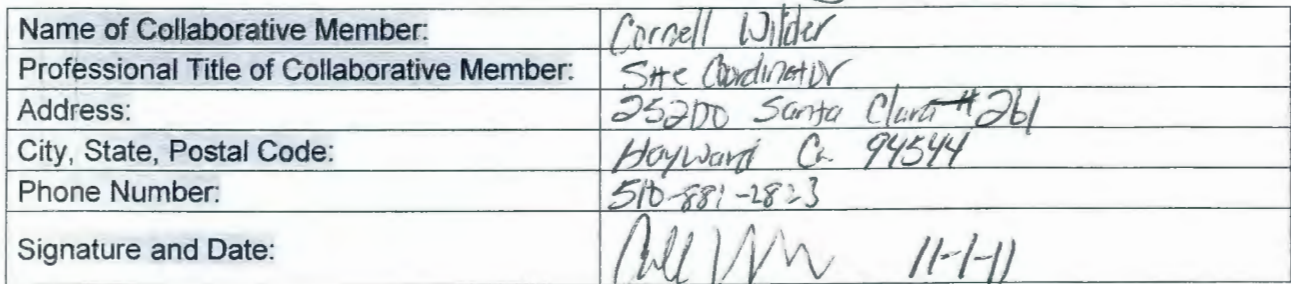 Name of Collaborative Member: Cornell Wilder
Professional Title of Collaborative Member: Site Coordinator
Address: 25200 Santa Clara #261
City, State, Postal Code: Hayward Ca. 94544
Phone Number: 510-881-2823
Signature and Date: 11-1-11